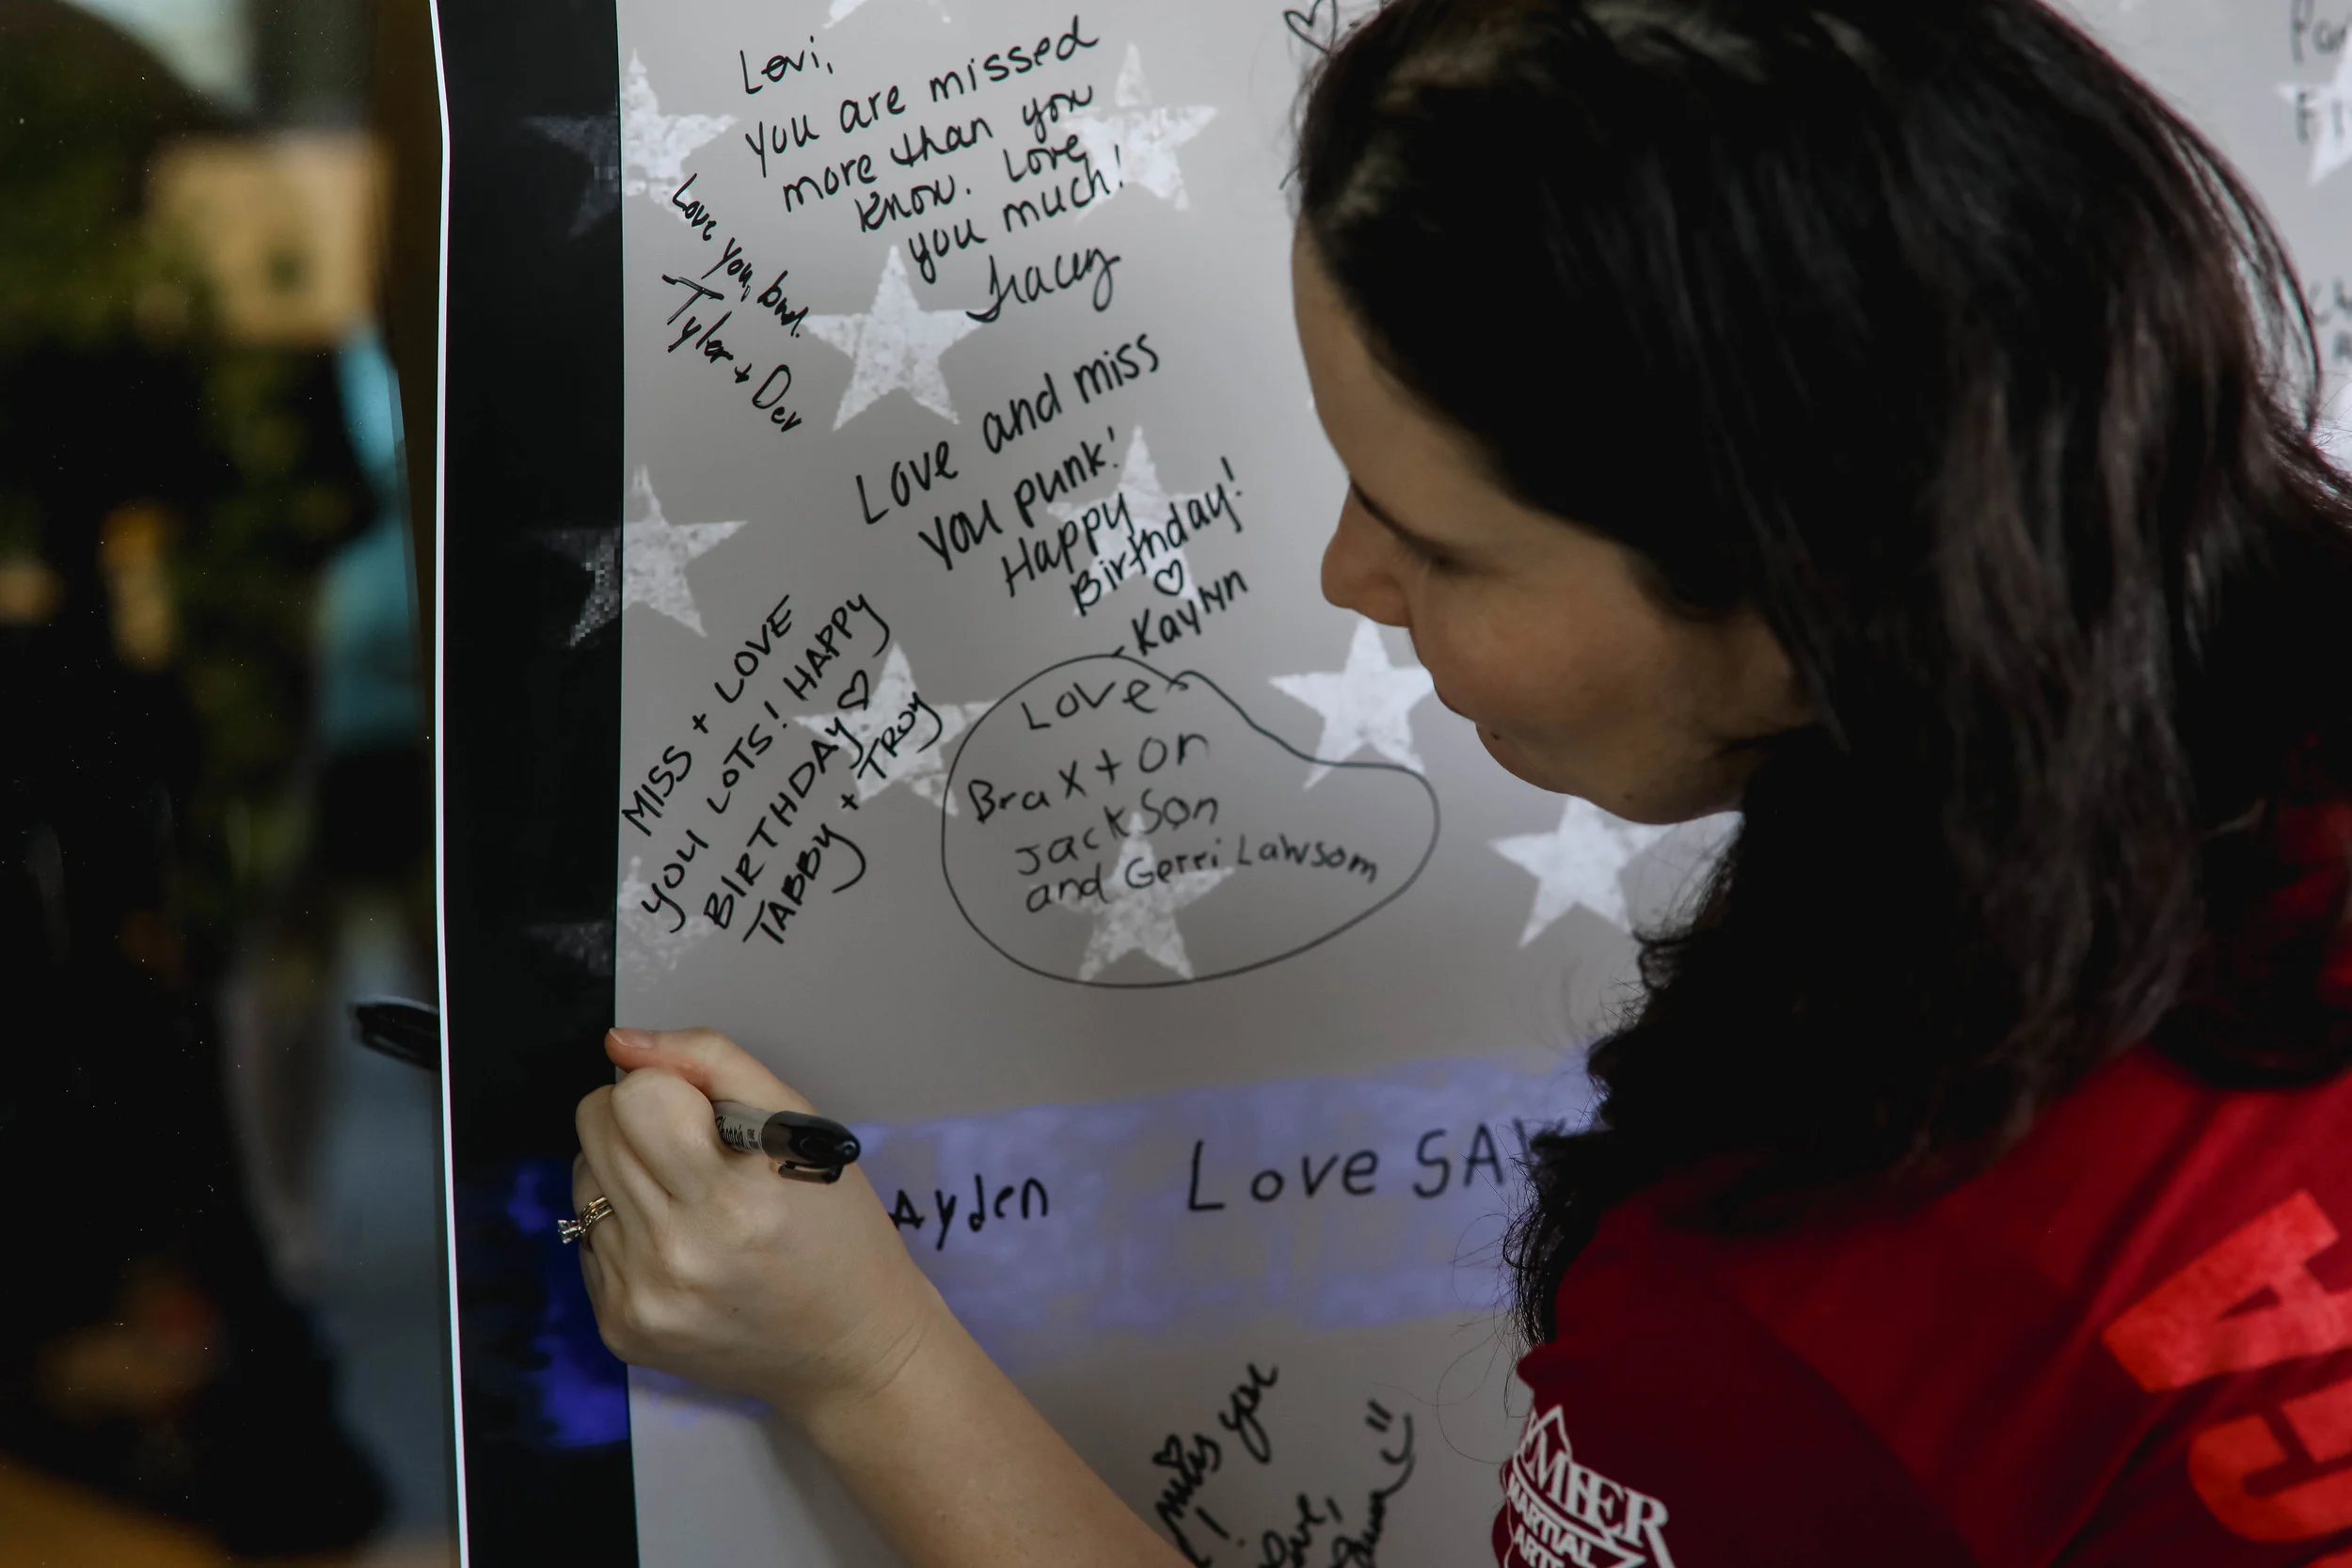 Levi,
You are missed
more than you
know. Love
you much!
Tracey
Love you, bud.
Tyler + Dev
Love and miss
you punk!
Happy
Birthday!
♡
-Kaylyn
MISS + LOVE
YOU LOTS! HAPPY
BIRTHDAY ♡
TABBY + TROY
Love
Braxton
Jackson
and Gerri Lawsom
Ayden
Love
miss you
!
Love,
MARTIAL